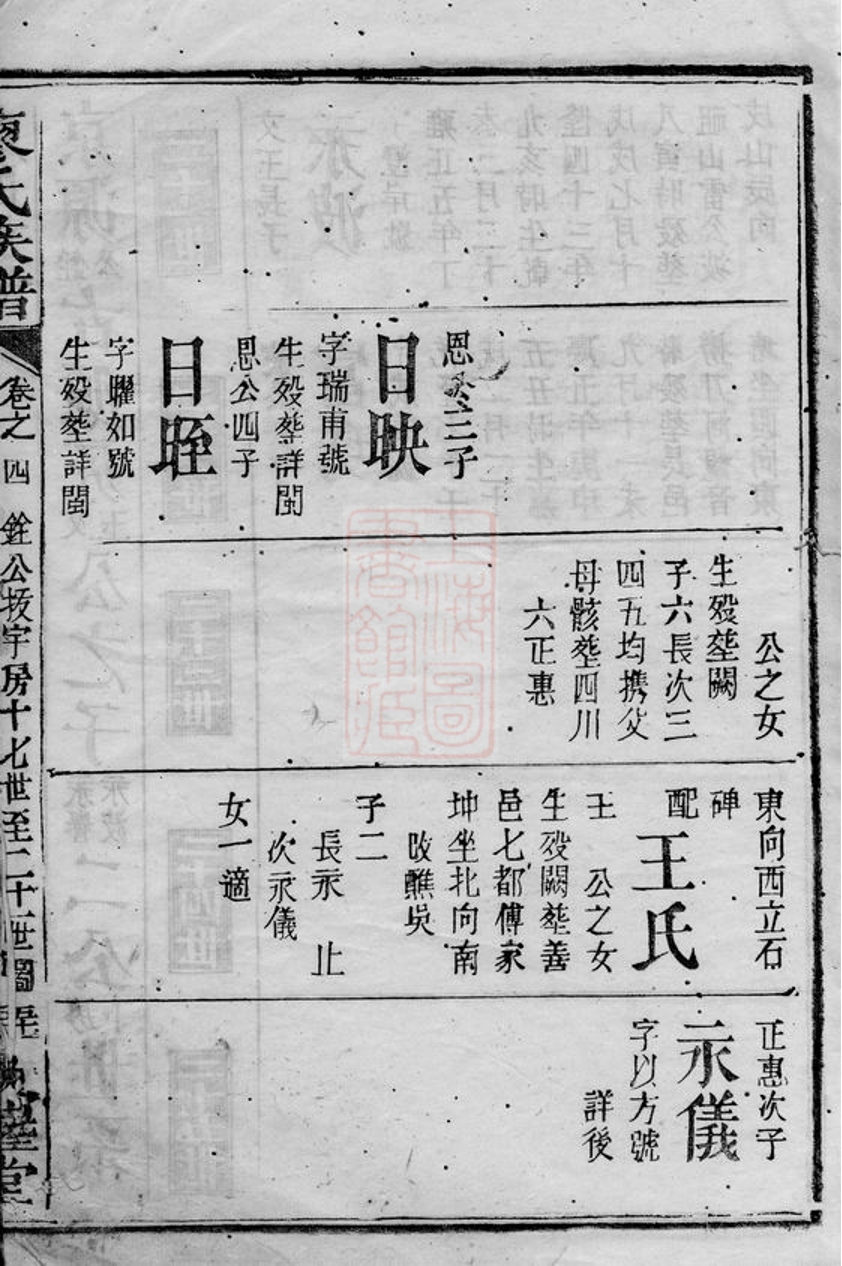 恩公三子
日映
字瑞甫號
生殁塟詳閩
恩公四子
日晊
字曜如號
生殁塟詳閩
公之女
生殁塟闕
子六長次三
四五均携父
母骸塟四川
六正惠
東向西立石
碑
配
王氏
王　公之女
生殁闕塟善
邑七都傅家
坤坐北向南
改醮吳
子二
長永　止
次永儀
女一適
正惠次子
永儀
字以方號
詳後
廖氏族譜
卷之四
銓公房十七世至二十一世圖
上海圖書館藏